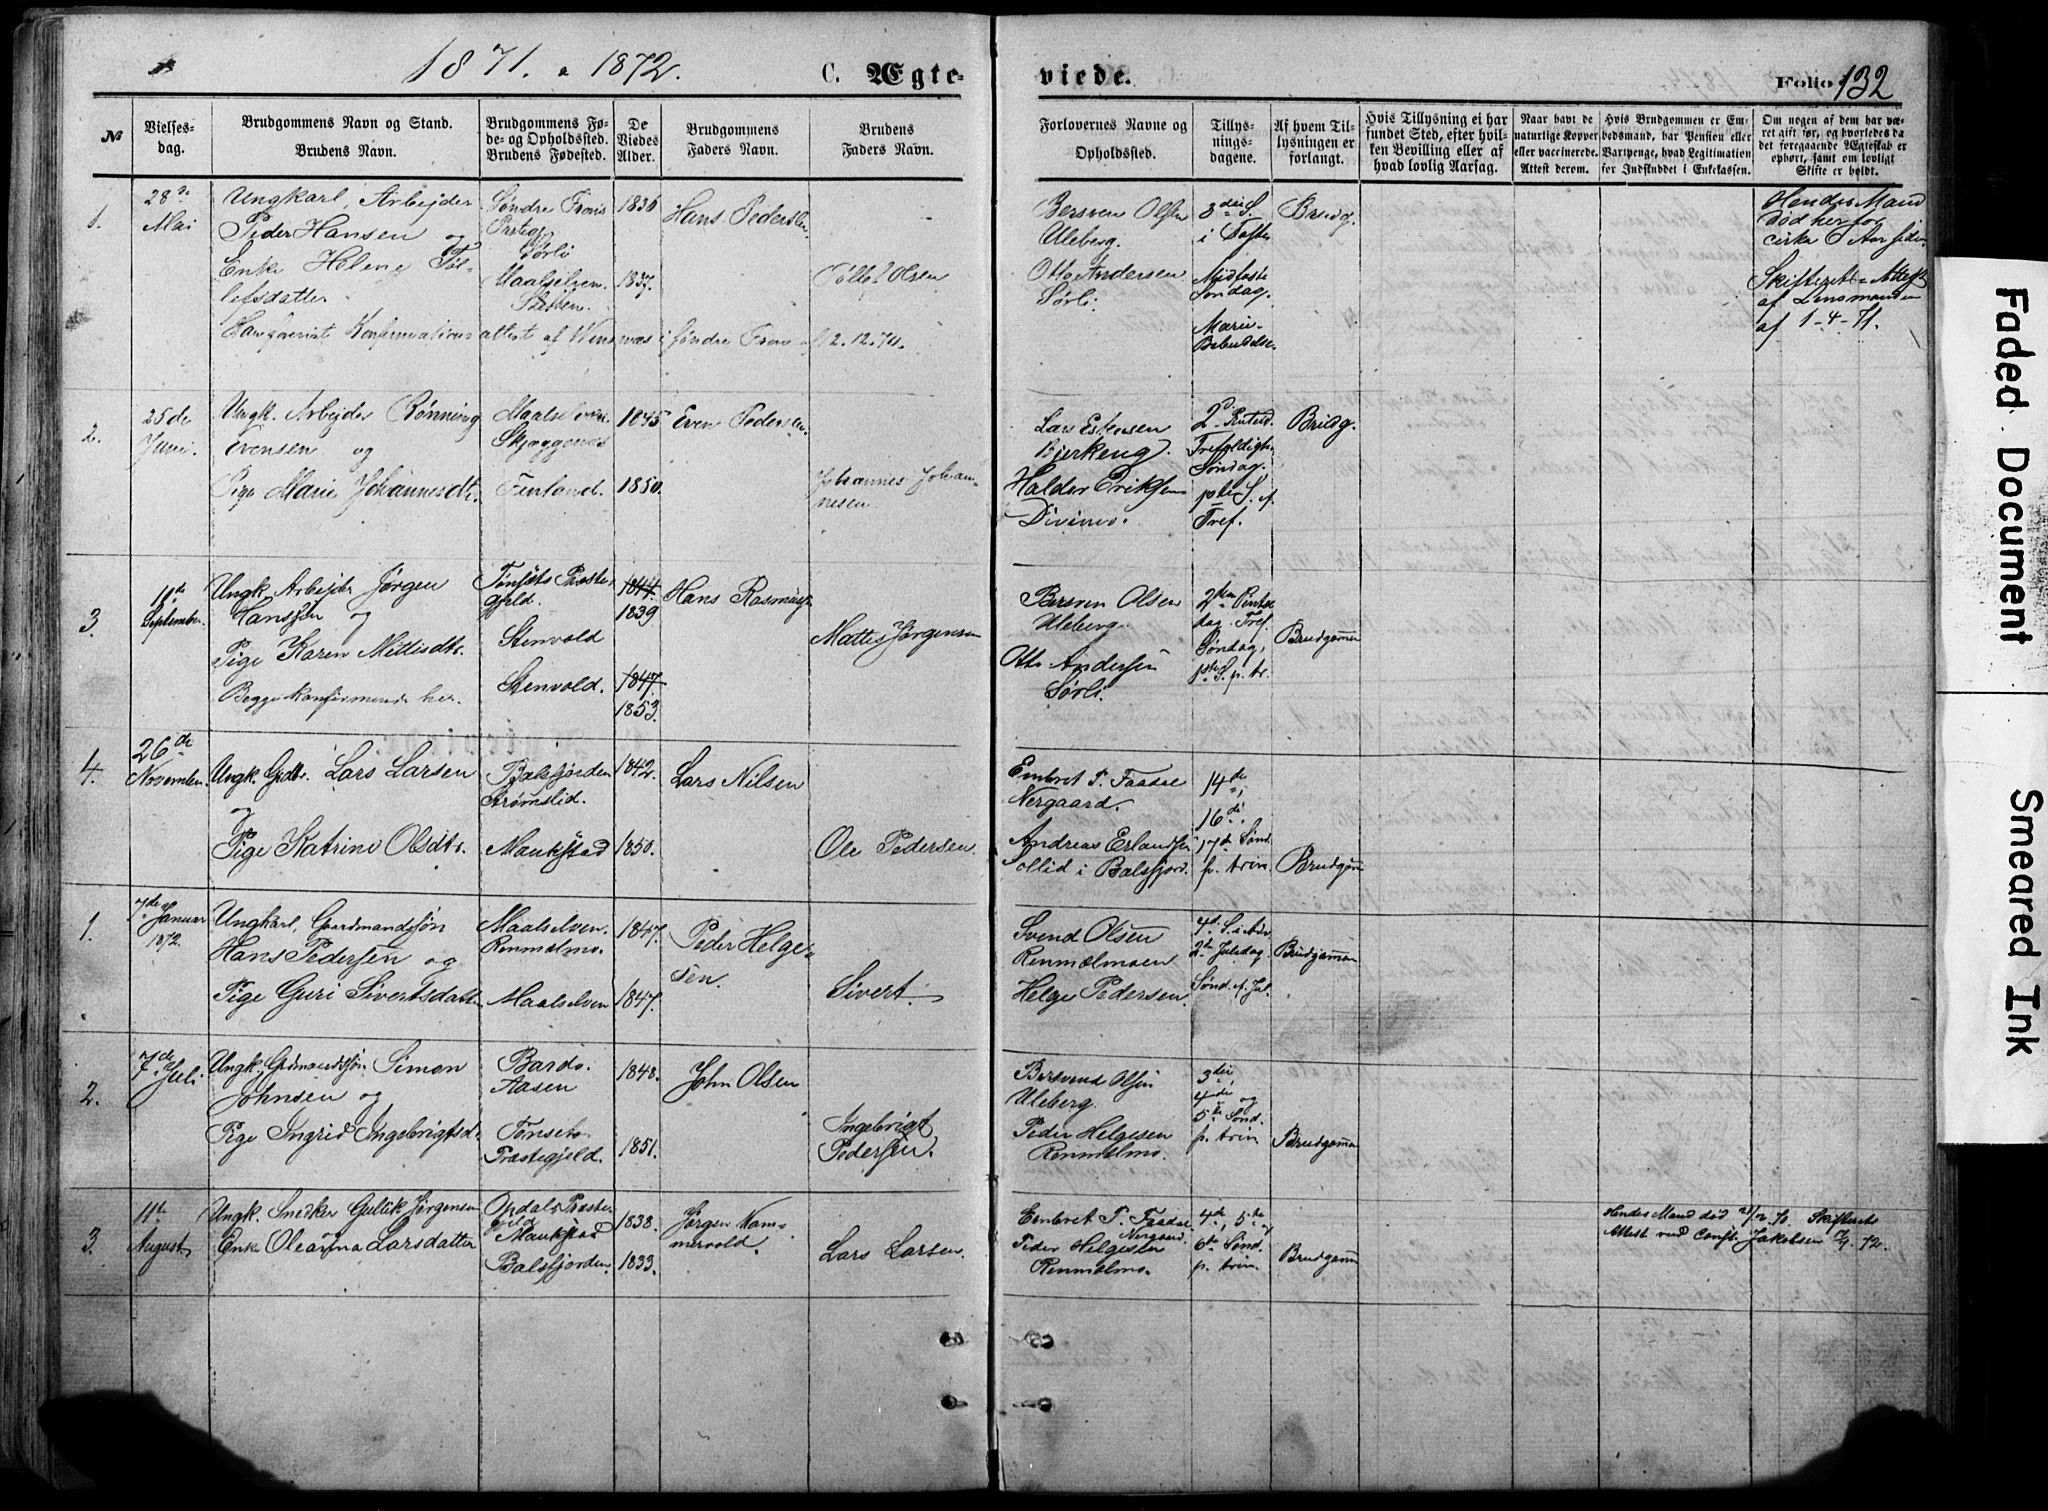 1871. & 1872.
C. Ægteviede.
Folio 132
№
Vielsesdag.
Brudgommens Navn og Stand.
Brudens Navn.
Brudgommens Føde- og Opholdssted.
Brudens Fødested.
De Viedes Alder.
Brudgommens Faders Navn.
Brudens Faders Navn.
Forlovernes Navne og Opholdssted.
Tillysningsdagene.
Af hvem Tillysningen er forlangt.
Hvis Tillysning ei har fundet Sted, efter hvilken Bevilling eller af hvad lovlig Aarsag.
Naar havt de naturlige Kopper eller vaccinerede. Attest derom.
Hvis Brudgommen er Embedsmand, har Pension eller Vartpenge, hvad Legitimation for Indskuddet i Enkekassen.
Om nogen af dem har været gift før, og hvorledes da det foregaaende Ægteskab er ophørt, samt om lovligt Skifte er holdt.
1.
28de Mai
Ungkarl, Arbejder
Peder Hansen og
Enke Helene Tollefsdatter
Søndre Frons Prstgj
Sørli
Maalselven.
1836
1837.
Hans Pedersen
Tollef Olsen
Konfirmationsattest af i søndre Fron 12.12.70.
Bersven Olsen
Uleberg.
Otto Andersen
Sørli.
3die S. i Faste
Midfaste Søndag.
Mariæ Bebudelse
Brudg.
Hendes Mand
død her for
cirka 6 Aar siden
Skifteret-Attest
af Lensmanden
af 1-4-71.
2.
25de Juni.
Ungk. Arbejder Rønning
Evensen og
Pige Marie Johannesdt.
Maalselven
Skjæggenes
Finland.
1845
1850.
Even Pedersen
Johannes Johannesen
Lars Estensen
Bjerkeng.
Haldor Eriksen
Divines.
2d. Pintsed.
Trefoldigh. Søndag.
1ste S. e. Tref.
Brudg.
3.
11te September
Ungk. Arbejder Jørgen
Hanssen og
Pige Karen Mettisdt.
Begge konfirmerede her.
Tønsæts Præstegjeld.
Stenvold
Stenvold.
1844.
1839
1847.
1853.
Hans Rasmussen
Mattis Jørgensen
Bersven Olsen
Uleberg.
Otto Andersen
Sørli.
2den Pintsedag. Tref.
Søndag,
1ste S. p. tr.
Brudgommen
4.
26de November
Ungk. Grdbr. Lars Larsen
og
Pige Katrine Olsdt.
Balsfjorden
Strømslid.
Maukstad
1842.
1850.
Lars Nilsen
Ole Pedersen.
Embret P. Faadse
Nergaard.
Andreas Erlandsen
Sollid i Balsfjord.
14de,
16de.
17de Sønd.
p. trin.
Brudgom
1.
7de Januar
1872.
Ungkarl, Gaardmandssøn
Hans Pedersen og
Pige Guri Sivertsdatter
Maalselven.
Renmælmo.
Maalselven
1847.
1847.
Peder Helgesen.
Sivert
Svend Olsen
Renmælmoen
Helge Pedersen.
4d. S. i Adv.
2d. Juledag.
Sønd. e. Jul.
Brudgommen
2.
7de Juli
Ungk. Grdmandssøn. Simon
Johnsen og
Pige Ingrid Ingebrigtsd.
Bardo.
Aasen
Tønsets
Præstegjeld.
1848.
1851.
John Olsen
Ingebrigt
Pedersen.
Bersvend Olsen
Uleberg.
Peder Helgesen
Renmælmo.
3die,
4de og
5te Sønd.
p. trin
Brudgommen
3.
11te August
Ungk. Snedker Gullik Jørgensen
Enke Oleanna Larsdatter
Opdals Præstegjeld
Maukstad
Balsfjorden.
1838.
1833.
Jørgen Nammervold.
Lars Larsen.
Embret P. Faadse
Nergaard.
Peder Helgesen
Renmælmo.
4de, 5te og
6te Sønd.
p. trin
Brudgom
Hendes Mand død Skifterets
Attest ved Const. Jakobsen 72.
Faded Document
Smeared Ink